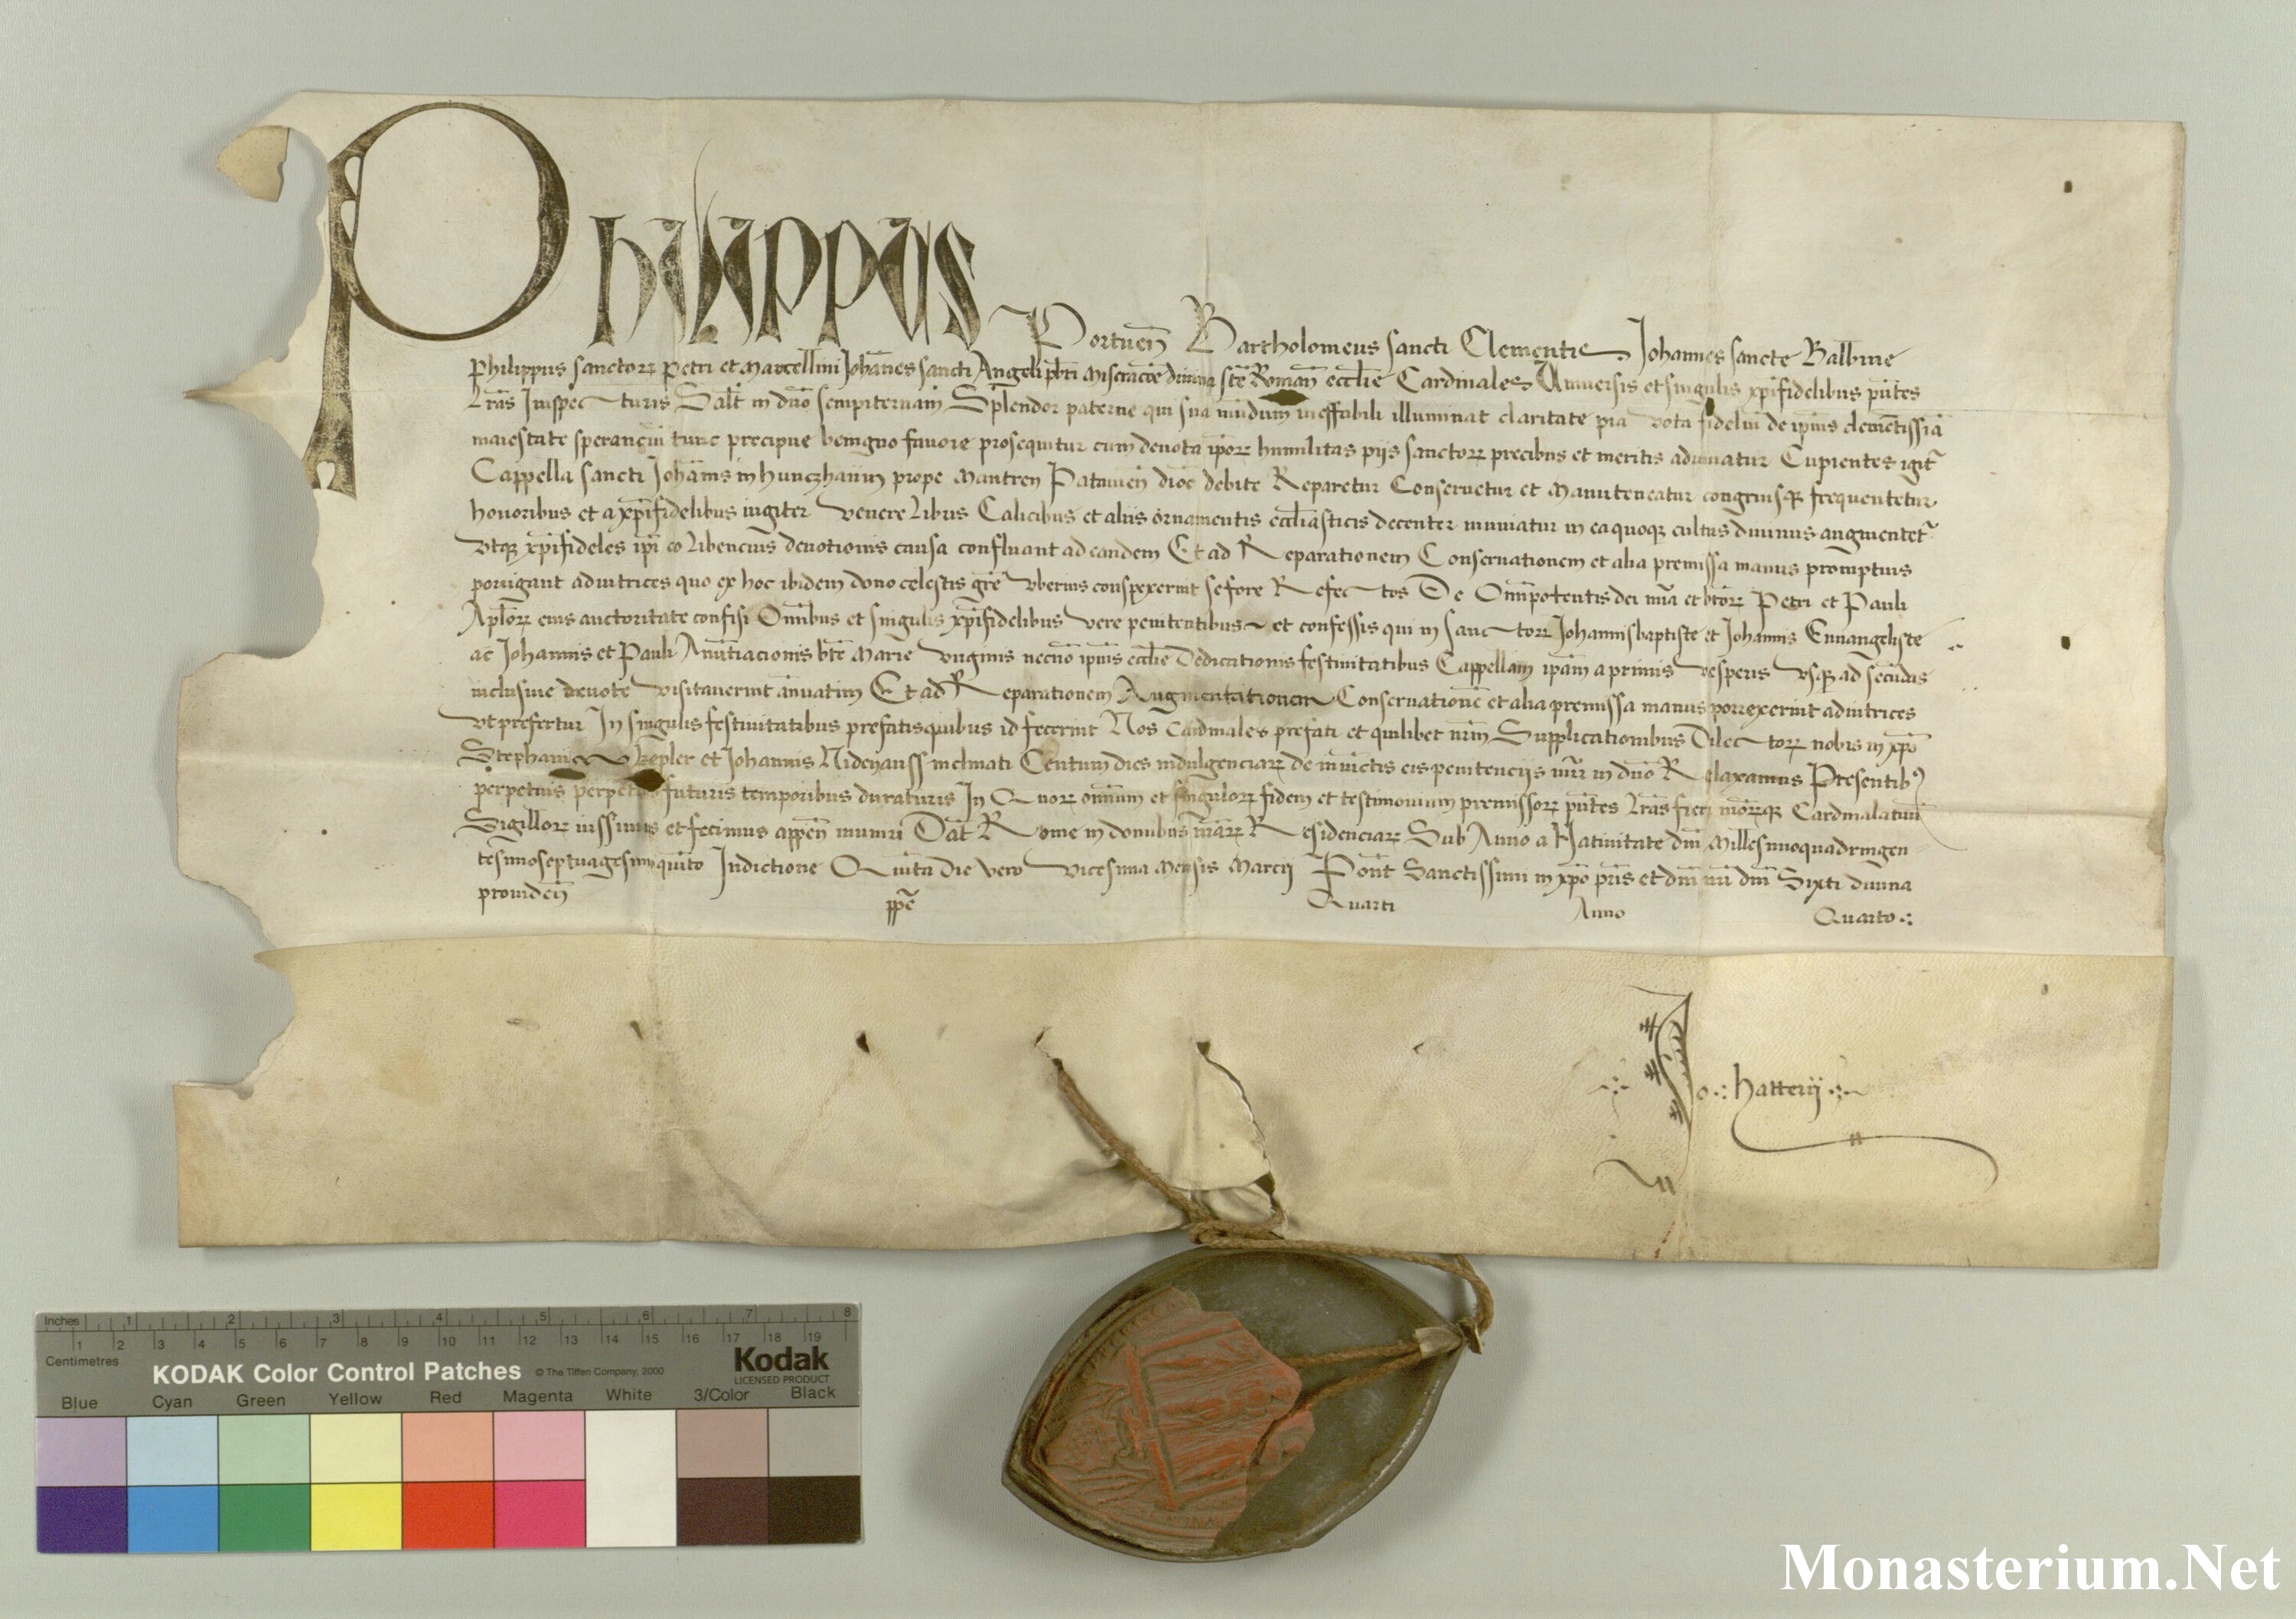 Philippus Portuen̄ Bartholomeus sancti Clementis Johannes sancte Balbine
Philippus sanctoꝝ Petri et Marcellini Johānes sancti Angeli pb̄ri Miserac̄ōe diuina sc̄te Roman̄ eccl̄ie Cardinales Vniuersis et singulis xp̄ifidelibus pn̄tes
Lr̄as Inspecturis Salt̄ in dn̄o sempiternam Splendor paterne qui sua mūdum ineffabili illuminat claritate pia vota fideliū de ip̄ius clemētissīa
maiestate speranciū tunc precipue benigno fauore prosequitur cum deuota ip̄oꝝ humilitas piis sanctoꝝ precibus et meritis adiuuatur Cupientes igit̄
Cappella sancti Johānis in hunczhaim prope Mautren Patauien̄ dioc̄ debite Reparetur Conseruetur et Manuteneatur congruisqꝫ frequentetur
honoribus et a xp̄ifidelibus iugiter veneretur Libris Calicibus et aliis ornamentis eccl̄iasticis decenter muniatur in ea quoqꝫ cultus diuinus augmentet̄
vtqꝫ xp̄ifideles ip̄i eo libencius deuotionis causa confluant ad eandem Et ad Reparationem Conseruationem et alia premissa manus promptius
porrigant adiutrices quo ex hoc ibidem dono celestis gr̄e vberius conspexerint se fore Refectos De Omīpotentis dei mīa et btōꝝ Petri et Pauli
Apl̄oꝝ eius auctoritate confisi Omībus et singulis xp̄ifidelibus vere penitentibus et confessis qui in sanctoꝝ Johannis baptiste et Johannis Euuangeliste
ac Johannis et Pauli Anūtiacionis bt̄e Marie virginis necnō ip̄ius eccl̄ie Dedicationis festiuitatibus Cappellam ip̄am a primis vesperis vsqꝫ ad secūdas
inclusiue deuote visitauerint ānuatim Et ad Reparationem Augmentationem Conseruationē et alia premissa manus porrexerint adiutrices
vt prefertur In singulis festiuitatibus prefatis quibus id fecerint Nos Cardinales prefati et quilibet nr̄m Supplicationibus Dilectoꝝ nobis in xp̄o
Stephani kepler et Johannis Nidenauss inclinati Centum dies indulgenciaꝝ de iniūctis eis penitencijs mīr in dn̄o Relaxamus Presentibꝰ
perpetuis perpetuis futuris temporibus duraturis In Quoꝝ omnium et singuloꝝ fidem et testimonium premissoꝝ pn̄tes Lr̄as fieri nr̄oꝝqꝫ Cardinalatuū
Sigilloꝝ iussimus et fecimus appen̄ muniri Dat̄ Rome in domibus nr̄aꝝ Residenciaꝝ Sub Anno a Natiuitate dn̄i Millesimoquadringen-
tesimoseptuagesimoquīto Indictione Quīta die vero vicesima Mensis Marcij Pont̄ Sanctissimi in xp̄o pr̄is et dn̄i nr̄i dn̄i Sixti diuina
prouiden̄ pp̄e Quarti Anno Quarto
Jo. hatterij
Inches 1 2 3 4 5 6 7 8
1 2 3 4 5 6 7 8 9 10 11 12 13 14 15 16 17 18 19
Centimetres
KODAK Color Control Patches © The Tiffen Company, 2000
Kodak
LICENSED PRODUCT
Blue Cyan Green Yellow Red Magenta White 3/Color Black
Monasterium.Net